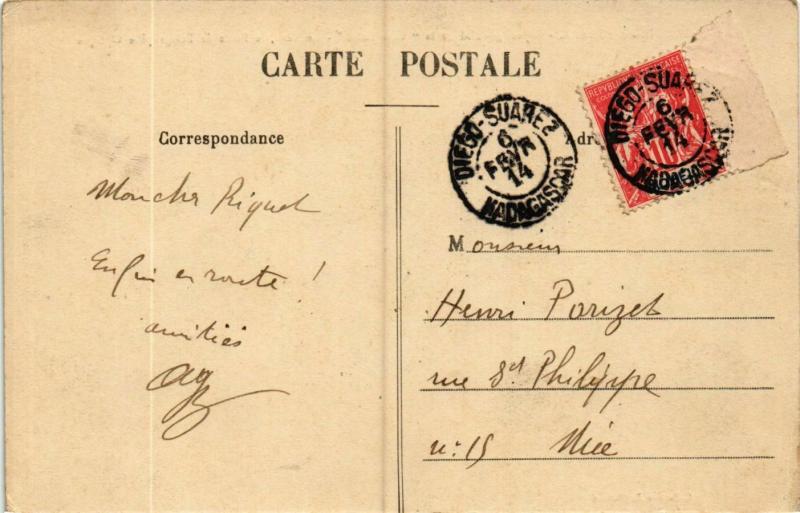 CARTE POSTALE
Correspondance
Mon cher Riquet
Enfin en route !
amitiés
DIEGO-SUAREZ
6
FEVR
14
MADAGASCAR
DIEGO-SUAREZ
6
FEVR
14
MADAGASCAR
10
Monsieur
Henri Parizet
rue St Philippe
n: 15 Nice